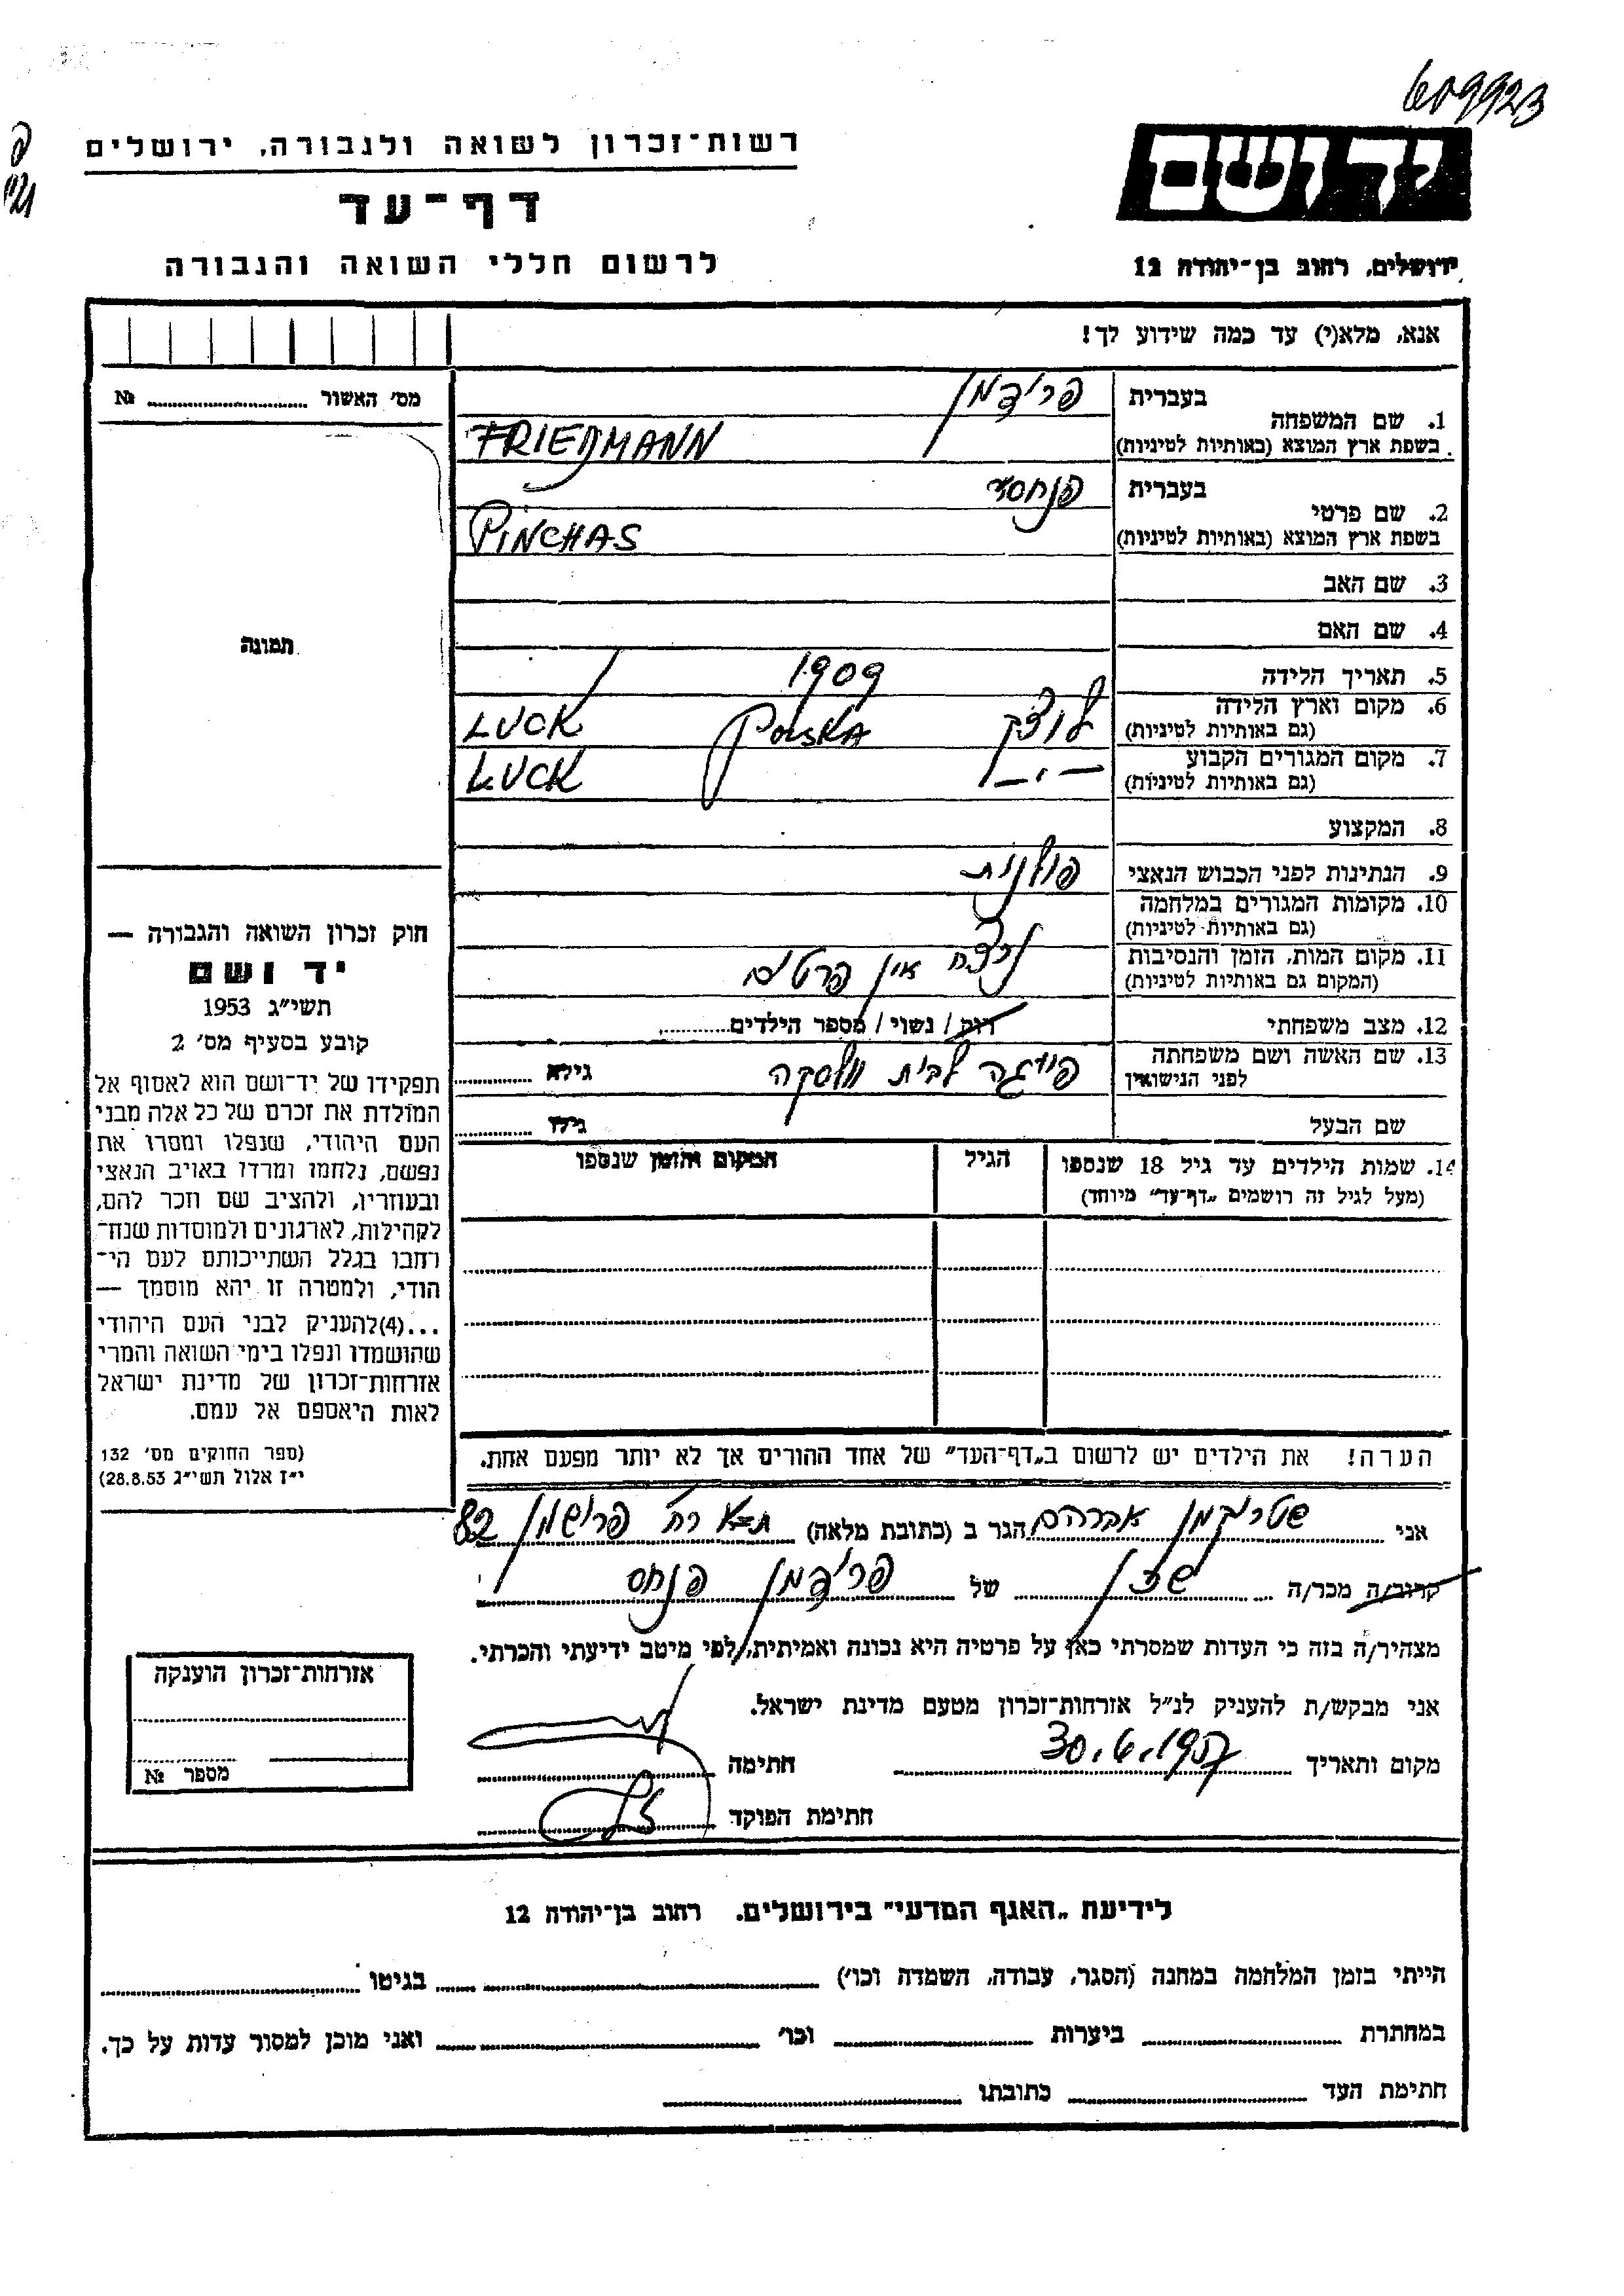 609923
רשות־זכרון לשואה ולגבורה, ירושלים
יד ושם
דף־עד
ירושלים, רחוב בן־יהודה 12
לרשום חללי השואה והגבורה
אנא, מלא(י) עד כמה שידוע לך!
מס' האשור ... №
תמונה
1. שם המשפחה
בעברית פרידמן
בשפת ארץ המוצא (באותיות לטיניות) FRIEDMANN
2. שם פרטי
בעברית פנחס
בשפת ארץ המוצא (באותיות לטיניות) PINCHAS
3. שם האב
4. שם האם
5. תאריך הלידה 1909
6. מקום וארץ הלידה לוצק POLSKA LUCK
(גם באותיות לטיניות)
7. מקום המגורים הקבוע — " — LUCK
(גם באותיות לטיניות)
8. המקצוע
9. הנתינות לפני הכבוש הנאצי פולנית
10. מקומות המגורים במלחמה
(גם באותיות לטיניות)
11. מקום המות, הזמן והנסיבות אין פרטים
(המקום גם באותיות לטיניות)
12. מצב משפחתי רוק / נשוי / מספר הילדים
13. שם האשה ושם משפחתה פייגה לבית גילא
לפני הנישואין
שם הבעל גילו
14. שמות הילדים עד גיל 18 שנספו הגיל המקום והזמן שנספו
(מעל לגיל זה רושמים „דף־עד" מיוחד)
הערה! את הילדים יש לרשום ב„דף־העד" של אחד ההורים אך לא יותר מפעם אחת.
חוק זכרון השואה והגבורה —
יד ושם
תשי"ג 1953
קובע בסעיף מס' 2
תפקידו של יד־ושם הוא לאסוף אל
המולדת את זכרם של כל אלה מבני
העם היהודי, שנפלו ומסרו את
נפשם, נלחמו ומרדו באויב הנאצי
ובעוזריו, ולהציב שם וזכר להם,
לקהילות, לארגונים ולמוסדות שנח־
רחבו בגלל השתייכותם לעם הי־
הודי, ולמטרה זו יהא מוסמך —
...(4)להעניק לבני העם היהודי
שהושמדו ונפלו בימי השואה והמרי
אזרחות־זכרון של מדינת ישראל
לאות היאספם אל עמם.
(ספר החוקים מס' 132
י"ז אלול תשי"ג 28.8.53)
אני שטריקמן אברהם הגר ב (כתובת מלאה) ת"א רח' פרישמן 82
קרוב/ה מכר/ה שכן של פרידמן פנחס
מצהיר/ה בזה כי העדות שמסרתי כאן על פרטיה היא נכונה ואמיתית, לפי מיטב ידיעתי והכרתי.
אני מבקש/ת להעניק לנ"ל אזרחות־זכרון מטעם מדינת ישראל.
מקום ותאריך 30.6.1957 חתימה
חתימת הפוקד
אזרחות־זכרון הוענקה
מספר №
לידיעת „האגף המדעי" בירושלים, רחוב בן־יהודה 12
הייתי בזמן המלחמה במחנה (הסגר, עבודה, השמדה וכו') בגיטו
במחתרת ביערות וכו' ואני מוכן למסור עדות על כך.
חתימת העד כתובתו